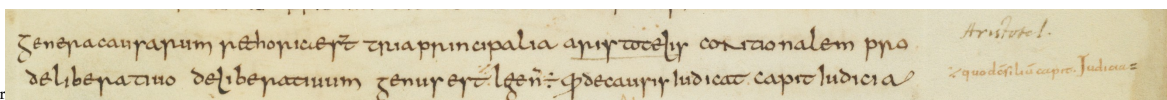 genera causarum rethorici est tria principalia aristotelis contionalem pro
deliberativo deliberativum genus est
iudicat capit iudicia
Aristotel.
capit Iudicia